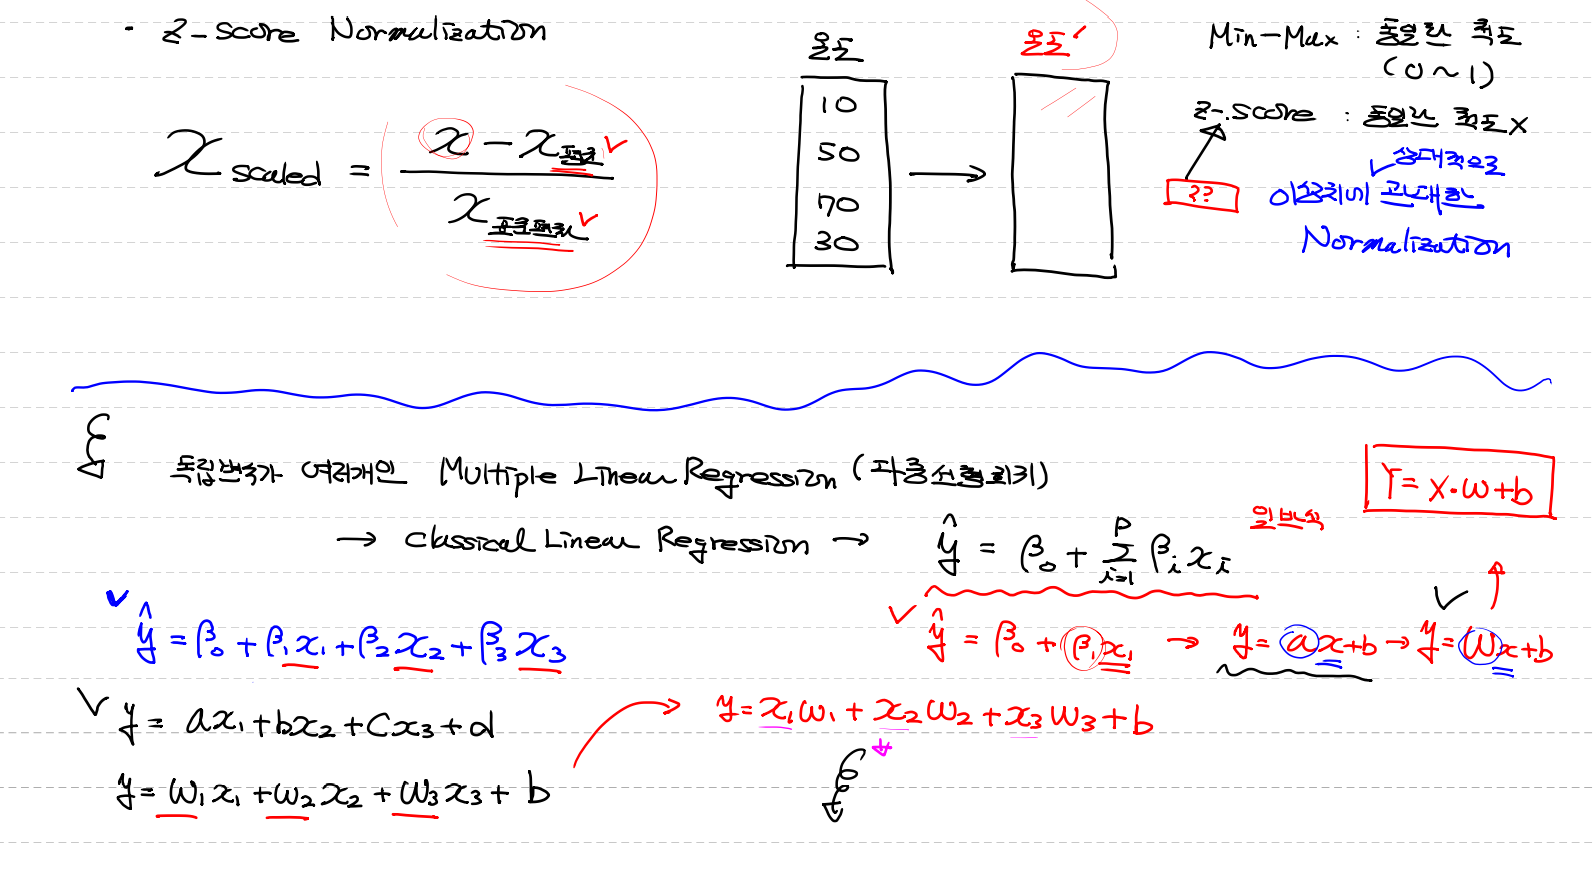 · Z-Score Normalization
x scaled = x - x평균 / x표준편차
온도
10
50
70
30
온도′
Min-Max : 동일한 척도
(0~1)
Z-score : 동일한 척도 X
??
상대적으로
이상치에 관대한
Normalization
독립변수가 여러개인 Multiple Linear Regression (다중선형회귀)
Y = X·W+b
→ Classical Linear Regression → ŷ = β₀ + Σ(i=1, p) βᵢxᵢ
일반식
ŷ = β₀ + β₁x₁ + β₂x₂ + β₃x₃
ŷ = β₀ + β₁x₁ → y = ax+b → y = Wx+b
y = ax₁+bx₂+Cx₃+d
y = x₁W₁ + x₂W₂ + x₃W₃ + b
y = W₁x₁ + W₂x₂ + W₃x₃ + b